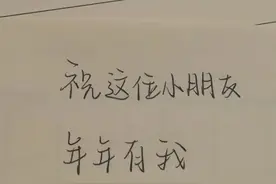 祝这位小朋友
年年有我